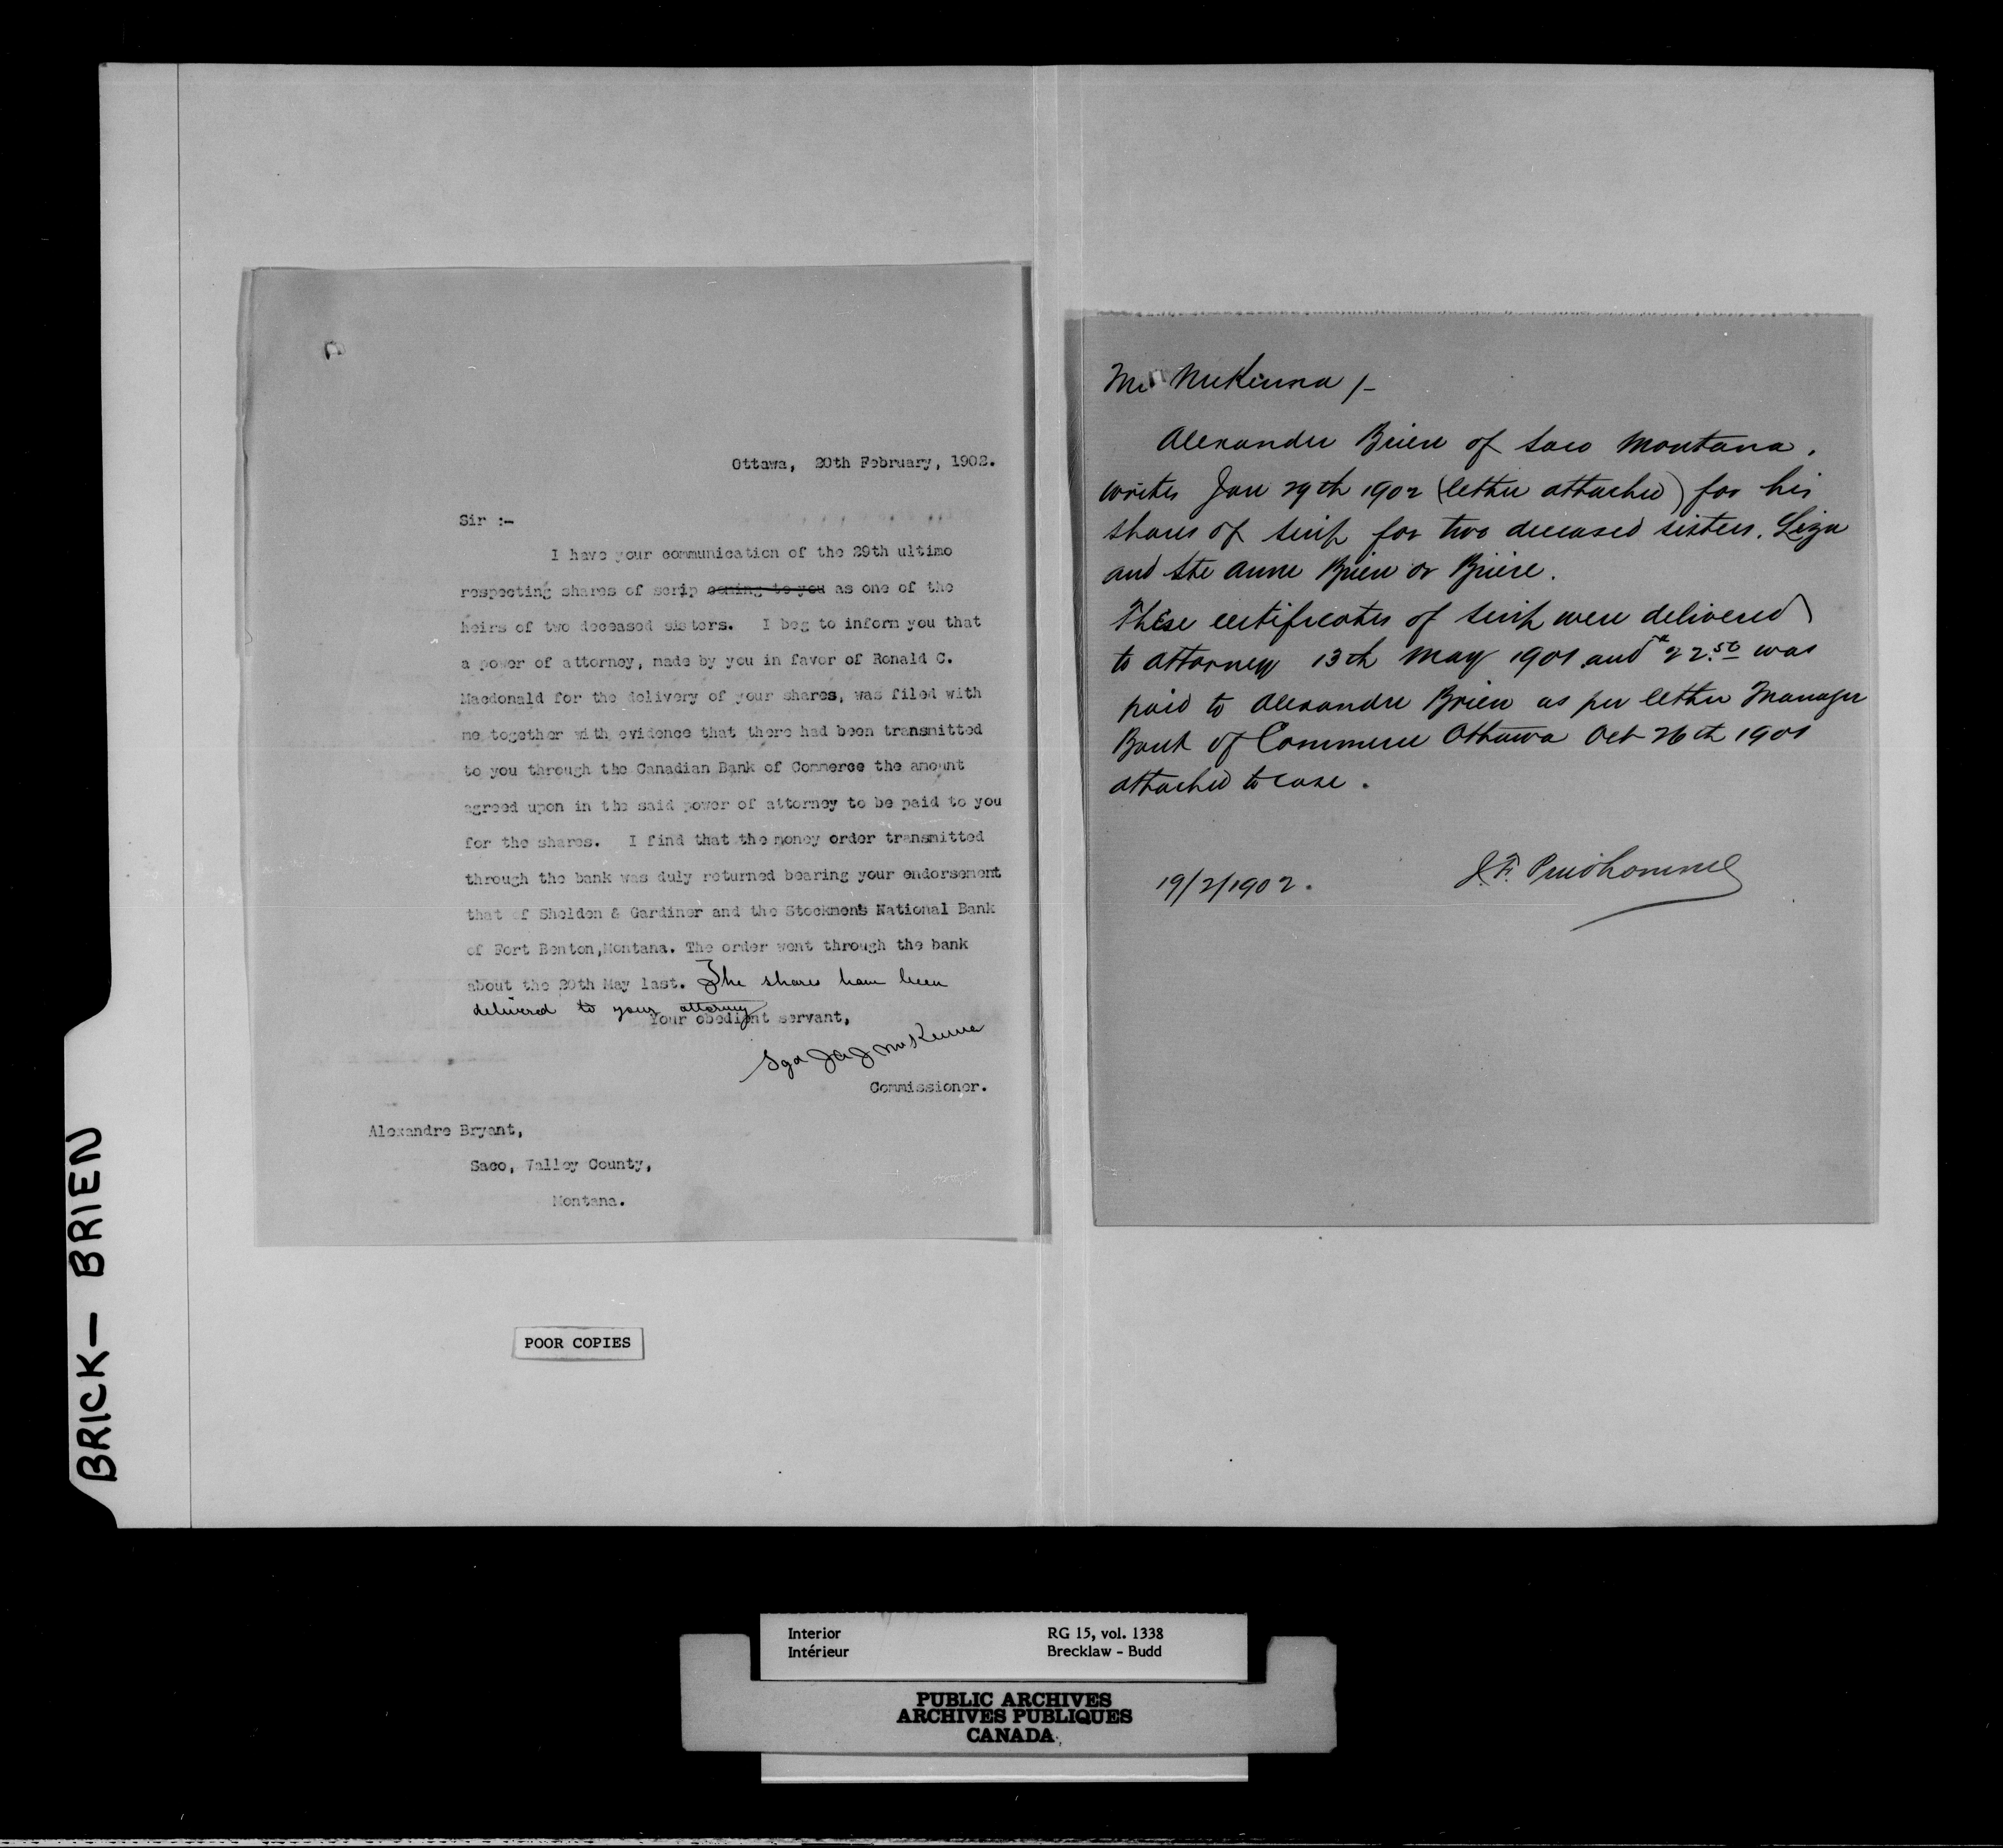 Ottawa, 20th February, 1902.
Sir :-
I have your communication of the 29th ultimo
respecting shares of scrip coming to you as one of the
heirs of two deceased sisters. I beg to inform you that
a power of attorney, made by you in favor of Ronald C.
Macdonald for the delivery of your shares, was filed with
me together with evidence that there had been transmitted
to you through the Canadian Bank of Commerce the amount
agreed upon in the said power of attorney to be paid to you
for the shares. I find that the money order transmitted
through the bank was duly returned bearing your endorsement
that of Sheldon & Gardiner and the Stockmens National Bank
of Fort Benton,Montana. The order went through the bank
about the 20th May last. The shares have been
delivered to your attorney
Your obedient servant,
Sgd J A J McKenna
Commissioner.
Alexandre Bryant,
Saco, Valley County,
Montana.
POOR COPIES
BRICK - BRIEN
Mr McKenna /-
Alexander Brien of Saco Montana.
writes Jan 29th 1902 (letter attached) for his
shares of scrip for two deceased sisters. Liza
and Ste Anne Brien or Briere.
These certificates of scrip were delivered
to attorney 13th May 1901 and $22.50 was
paid to Alexandre Brien as per letter Manager
Bank of Commerce Ottawa Oct 26th 1901
attached to case.
19/2/1902.
J.F. Prudhomme
Interior
Intérieur
RG 15, vol. 1338
Brecklaw - Budd
PUBLIC ARCHIVES
ARCHIVES PUBLIQUES
CANADA